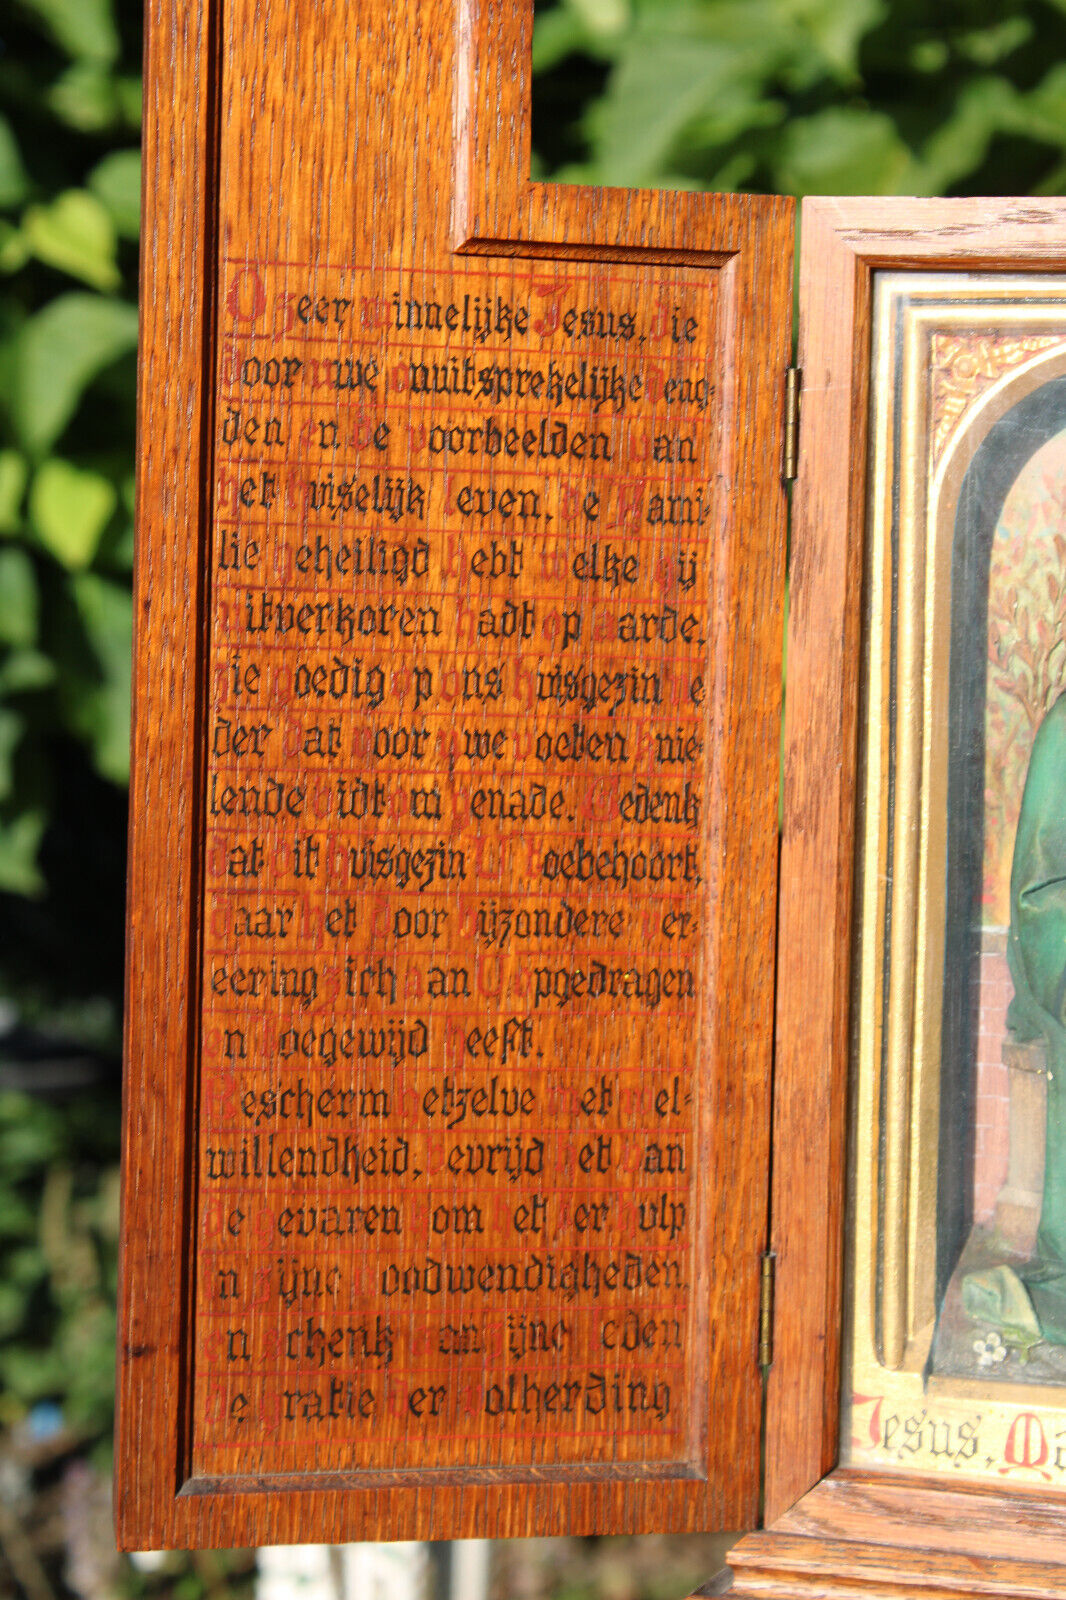 O zeer minnelijke Jesus, die
door uwe onuitsprekelijke deug-
den en de voorbeelden van
het huiselijk leven, de Fami-
lie geheiligd hebt welke gij
uitverkoren hadt op aarde,
zie goedig op ons huisgezin ne-
der dat voor uwe voeten knie-
lende bidt om genade. Gedenk
dat dit huisgezin U toebehoort,
daar het door bijzondere ver-
eering zich aan U opgedragen
en toegewijd heeft.
Bescherm hetzelve met wel-
willendheid, bevrijd het van
de gevaren kom het ter hulp
in zijne noodwendigheden,
en schenk aan zijne leden
de gratie der volherding
Jesus, Ma